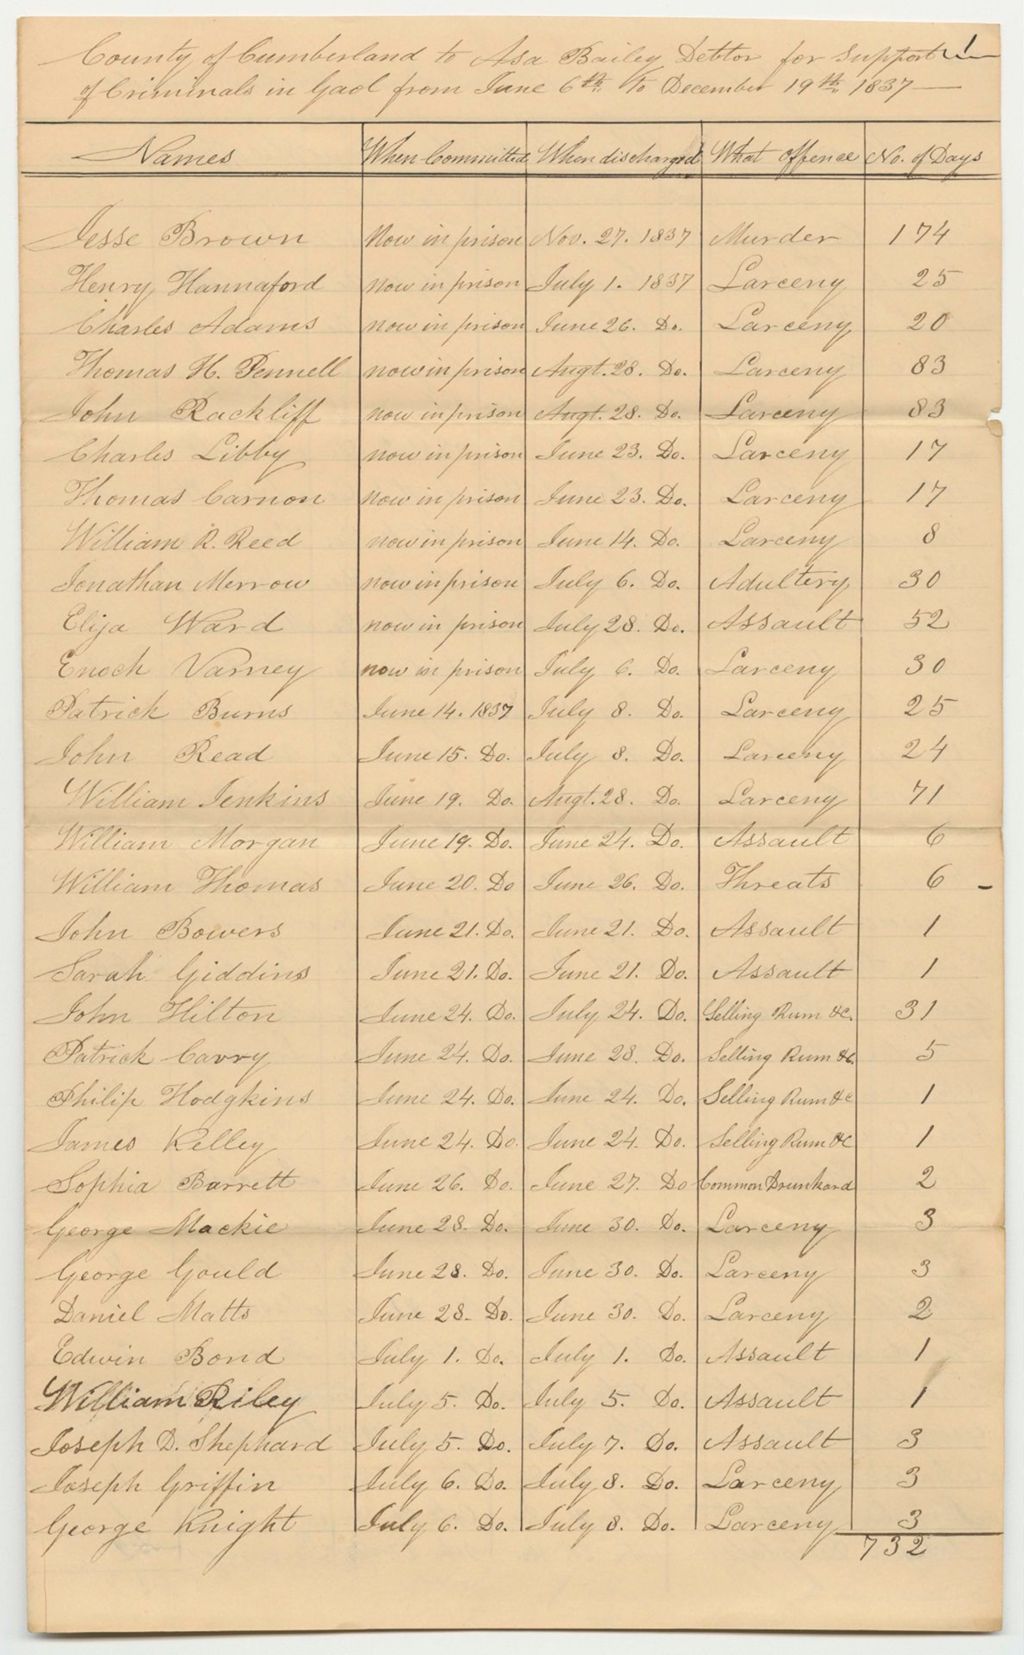 County of Cumberland to Asa Bailey Debtor for support 1
of Criminals in Gaol from June 6th. to December 19th. 1837
Names When Committed When discharged What offence No. of Days
Jesse Brown now in prison Nov. 27. 1837 Murder 174
Henry Hannaford now in prison July 1. 1837 Larceny 25
Charles Adams now in prison June 26. Do. Larceny 20
Thomas H. Pennell now in prison Augt. 28. Do. Larceny 83
John Rackliff now in prison Augt. 28. Do. Larceny 83
Charles Libby now in prison June 23. Do. Larceny 17
Thomas Carnon now in prison June 23. Do. Larceny 17
William R. Reed now in prison June 14. Do. Larceny 8
Jonathan Merrow now in prison July 6. Do. Adultery 30
Elija Ward now in prison July 28. Do. Assault 52
Enoch Varney now in prison July 6. Do. Larceny 30
Patrick Burns June 14. 1837 July 8. Do. Larceny 25
John Read June 15. Do. July 8. Do. Larceny 24
William Jenkins June 19. Do. Augt. 28. Do. Larceny 71
William Morgan June 19. Do. June 24. Do. Assault 6
William Thomas June 20. Do June 26. Do. Threats 6
John Bowers June 21. Do. June 21. Do. Assault 1
Sarah Giddins June 21. Do. June 21. Do. Assault 1
John Hilton June 24. Do. July 24. Do. Selling Rum &c. 31
Patrick Cavry June 24. Do. June 28. Do. Selling Rum &c. 5
Philip Hodgkins June 24. Do. June 24. Do. Selling Rum &c 1
James Kelley June 24. Do. June 24. Do. Selling Rum &c 1
Sophia Barrett June 26. Do. June 27. Do Common Drunkard 2
George Mackie June 28. Do. June 30. Do. Larceny 3
George Gould June 28. Do. June 30. Do. Larceny 3
Daniel Matts June 28. Do. June 30. Do. Larceny 2
Edwin Bond July 1. Do. July 1. Do. Assault 1
William Riley July 5. Do. July 5. Do. Assault 1
Joseph D. Shephard July 5. Do. July 7. Do. Assault 3
Joseph Griffin July 6. Do. July 8. Do. Larceny 3
George Knight July 6. Do. July 8. Do. Larceny 3
732